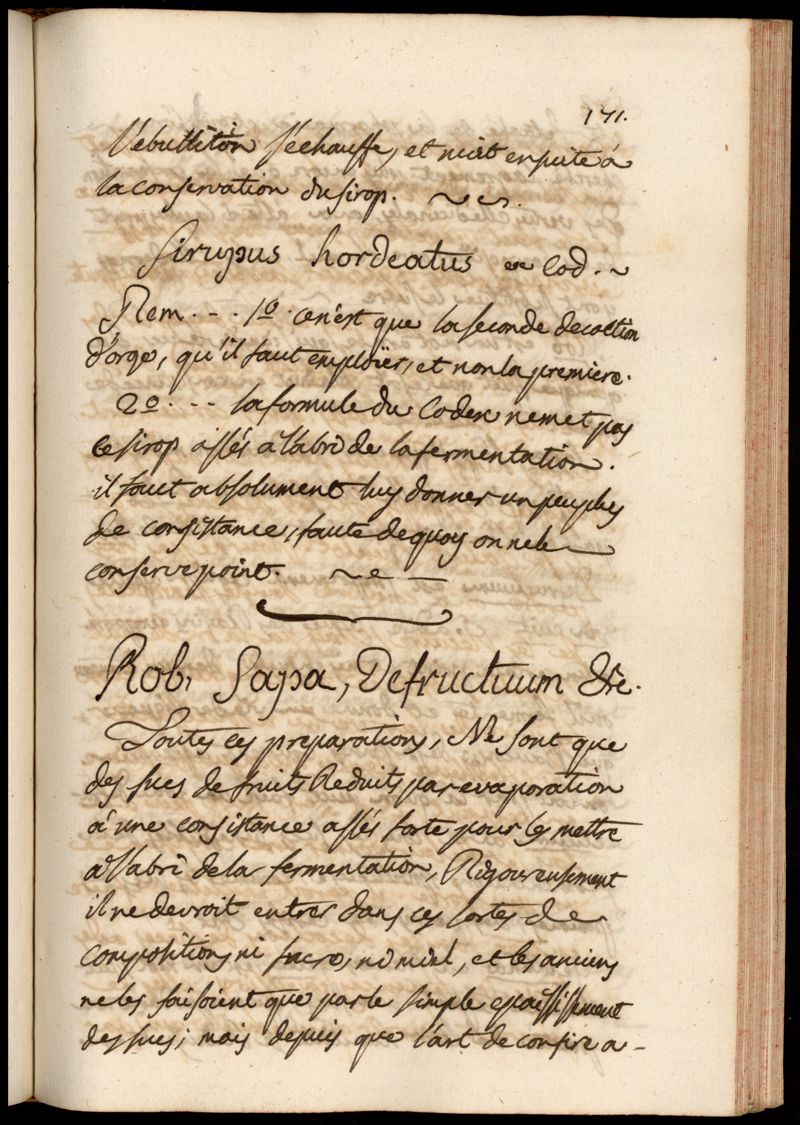 171.
l'ebullition s'echauffe, et nuit ensuite á
la conservation du sirop.
Sirupus hordeatus Cod.
Rem. - - 1º. ce n'est que la seconde decoction
d'orge, qu'il faut emploïer, et non la premiere.
2º. - - la formule du Codex ne met pas
ce sirop assés a l'abri de la fermentation.
il faut absolument luy donner un peu plus
de consistance, faute de quoy on ne le
conserve point.
Rob, Sapa, Defructuum &c.
Toutes ces preparations, Ne sont que
des sucs de fruits Reduits par evaporation
a une consistance assés forte pour les mettre
a l'abri de la fermentation, Rigoureusement
il ne devroit entrer dans ces sortes de
compositions ni sucre, ni miel, et les anciens
ne les faisoient que par le simple epaississement
des sucs; mais depuis que l'art de confire a-